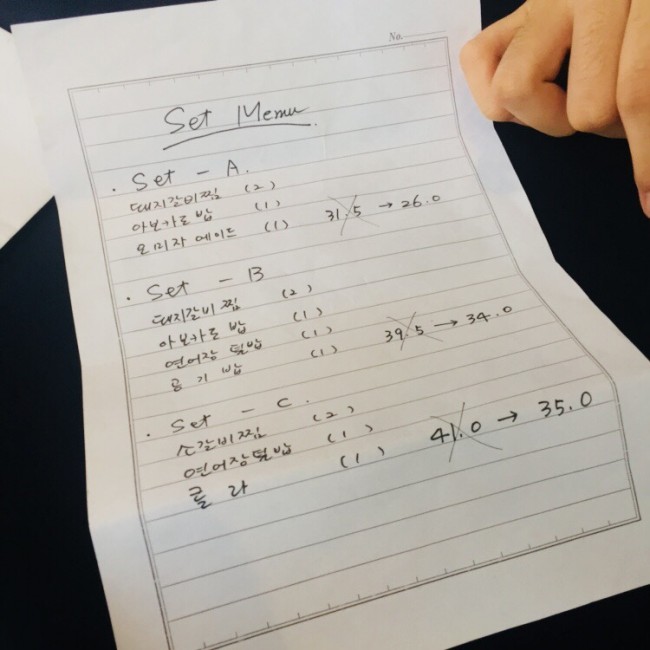 No.
Set Menu
· Set - A.
돼지갈비찜 (2)
아보카도밥 (1)
오미자 에이드 (1) 31.5 → 26.0
· Set - B
돼지갈비찜 (2)
아보카도 밥 (1)
연어장 덮밥 (1)
공기밥 (1) 39.5 → 34.0
· Set - C.
소갈비찜 (2)
연어장덮밥 (1)
콜라 (1) 41.0 → 35.0